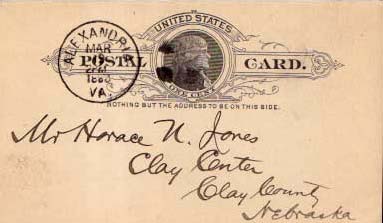 UNITED STATES
POSTAL CARD.
ONE CENT
NOTHING BUT THE ADDRESS TO BE ON THIS SIDE.
ALEXANDRIA
MAR
VA.
Mr Horace N. Jones
Clay Center
Clay County
Nebraska